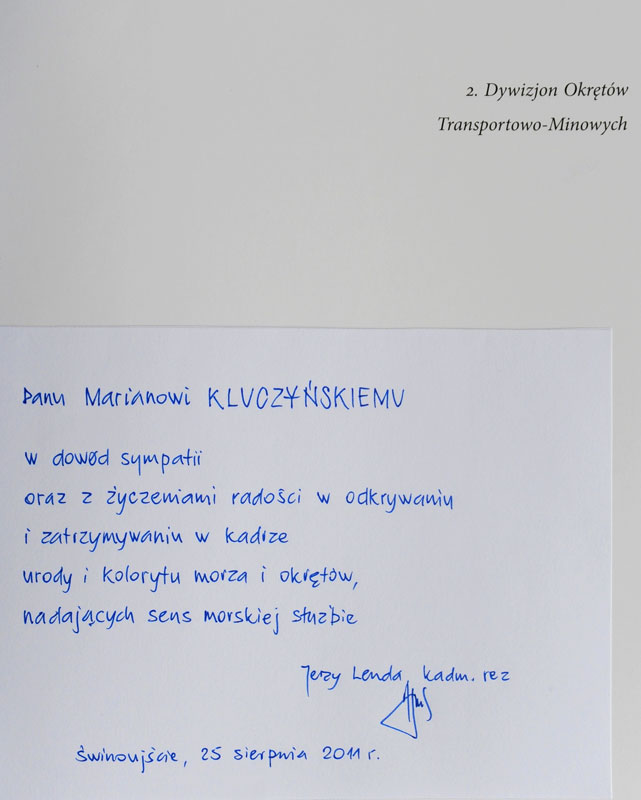 2. Dywizjon Okrętów
Transportowo-Minowych
Panu Marianowi KLUCZYŃSKIEMU
w dowód sympatii
oraz z życzeniami radości w odkrywaniu
i zatrzymywaniu w kadrze
urody i kolorytu morza i okrętów,
nadających sens morskiej służbie
Jerzy Lenda, kadm. rez
Świnoujście, 25 sierpnia 2011 r.